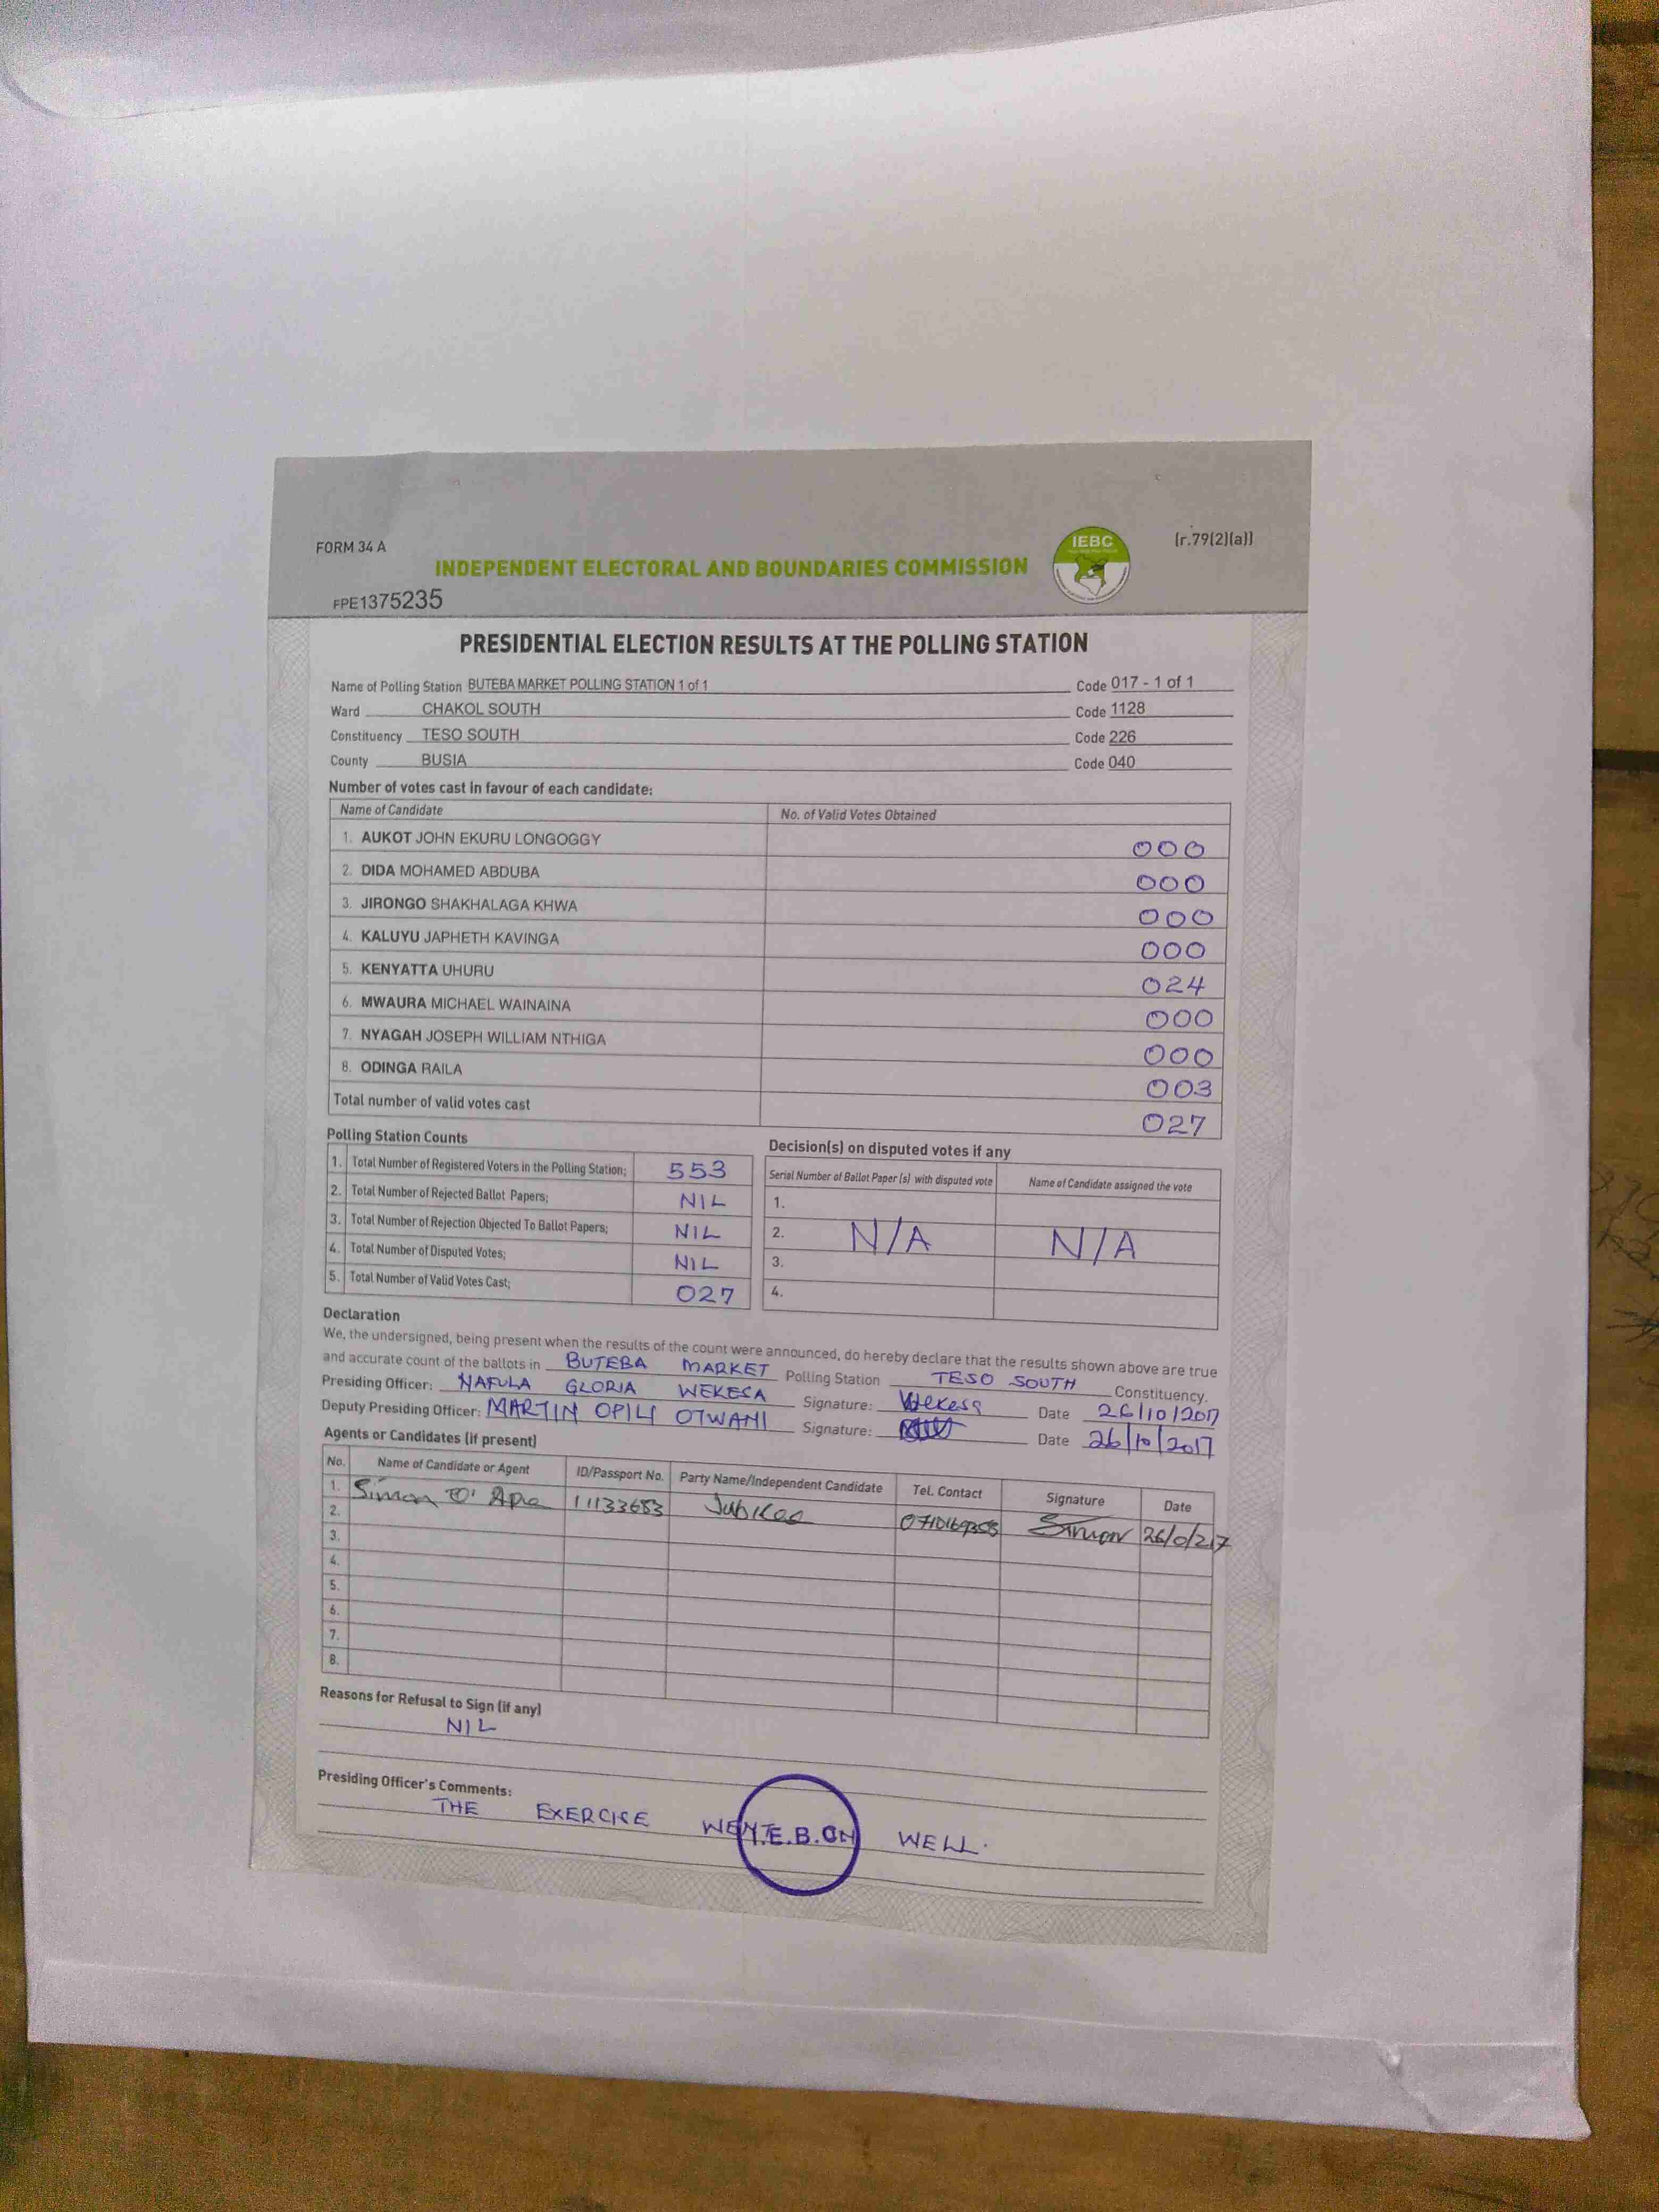 FORM 34 A
INDEPENDENT ELECTORAL AND BOUNDARIES COMMISSION
IEBC
[r.79(2)(a)]
FPE1375235
PRESIDENTIAL ELECTION RESULTS AT THE POLLING STATION
Name of Polling Station BUTEBA MARKET POLLING STATION 1 of 1 Code 017 - 1 of 1
Ward CHAKOL SOUTH Code 1128
Constituency TESO SOUTH Code 226
County BUSIA Code 040
Number of votes cast in favour of each candidate:
Name of Candidate No. of Valid Votes Obtained
1. AUKOT JOHN EKURU LONGOGGY 000
2. DIDA MOHAMED ABDUBA 000
3. JIRONGO SHAKHALAGA KHWA 000
4. KALUYU JAPHETH KAVINGA 000
5. KENYATTA UHURU 024
6. MWAURA MICHAEL WAINAINA 000
7. NYAGAH JOSEPH WILLIAM NTHIGA 000
8. ODINGA RAILA 003
Total number of valid votes cast 027
Polling Station Counts
1. Total Number of Registered Voters in the Polling Station; 553
2. Total Number of Rejected Ballot Papers; NIL
3. Total Number of Rejection Objected To Ballot Papers; NIL
4. Total Number of Disputed Votes; NIL
5. Total Number of Valid Votes Cast; 027
Decision(s) on disputed votes if any
Serial Number of Ballot Paper (s) with disputed vote Name of Candidate assigned the vote
1.
2. N/A N/A
3.
4.
Declaration
We, the undersigned, being present when the results of the count were announced, do hereby declare that the results shown above are true
and accurate count of the ballots in BUTEBA MARKET Polling Station TESO SOUTH Constituency.
Presiding Officer: NAFULA GLORIA WEKESA Signature: Wekesa Date 26/10/2017
Deputy Presiding Officer: MARTIN OPILI OTWANI Signature: Date 26/10/2017
Agents or Candidates (if present)
No. Name of Candidate or Agent ID/Passport No. Party Name/Independent Candidate Tel. Contact Signature Date
1. Simon O' 11133683 Jubilee Simon
2.
3.
4.
5.
6.
7.
8.
Reasons for Refusal to Sign (if any)
NIL
Presiding Officer's Comments:
THE EXERCISE WENT ON WELL.